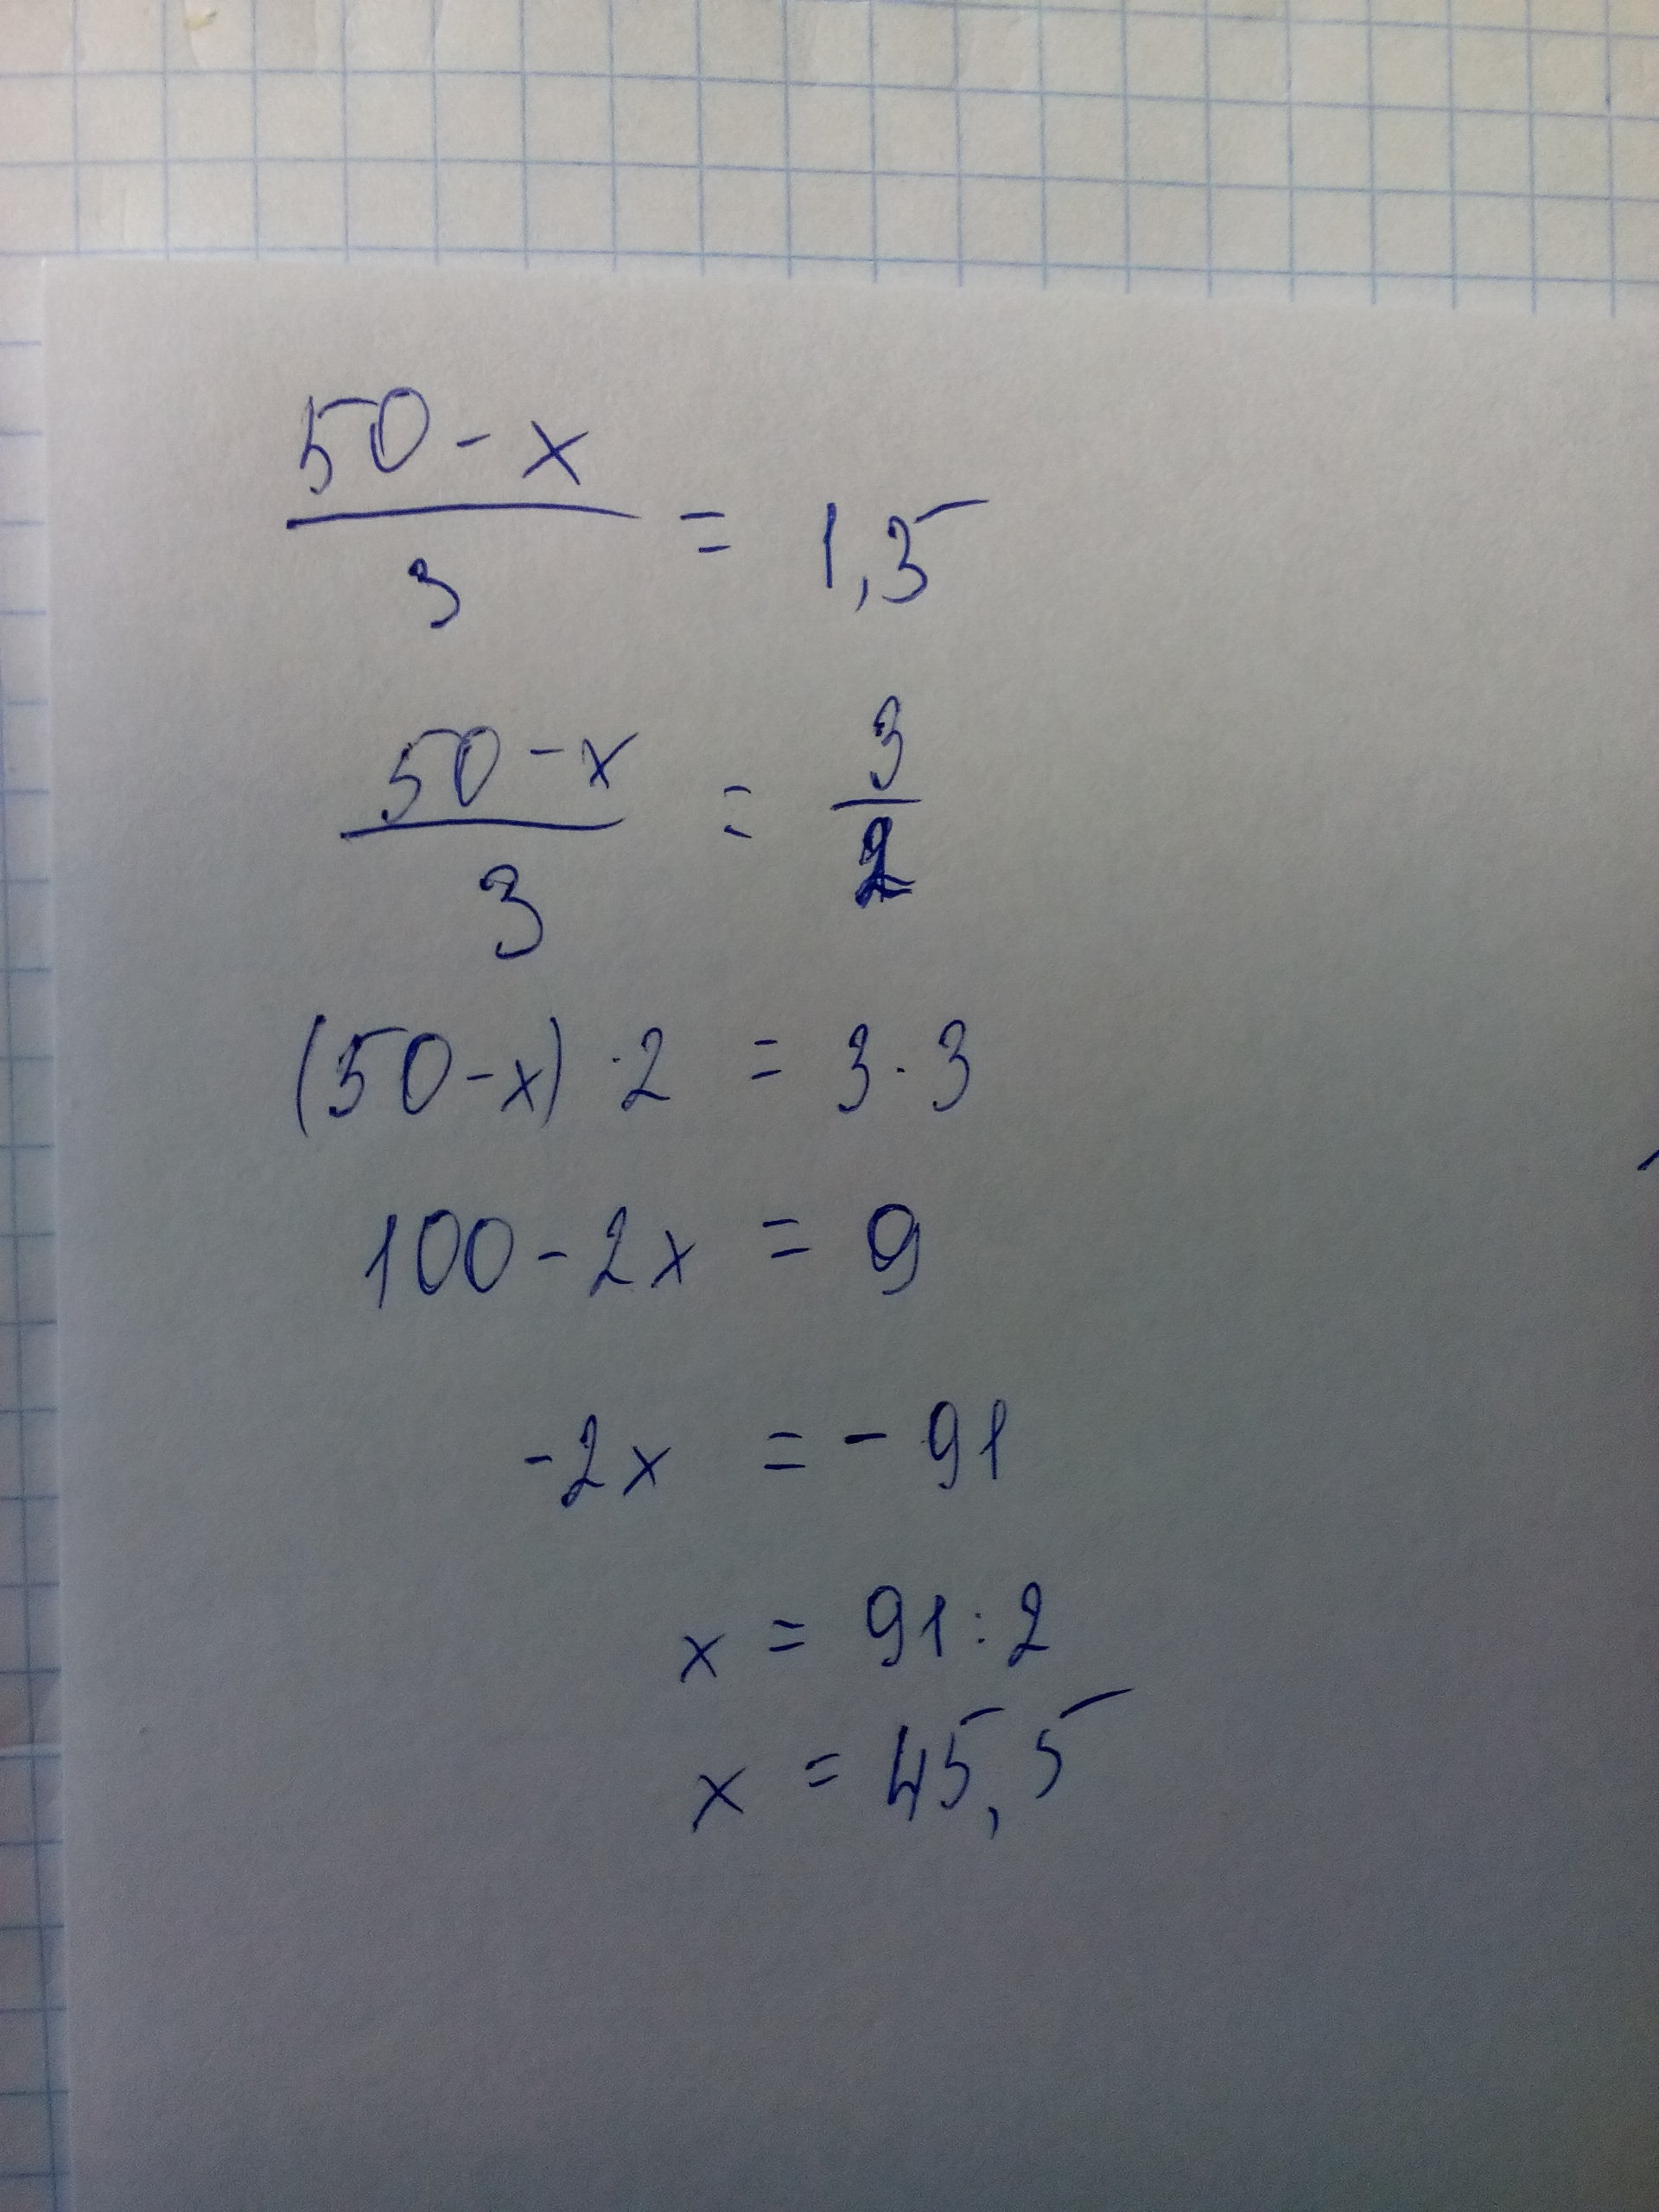 50 - x / 3 = 1,5
50 - x / 3 = 3 / 2
(50 - x) · 2 = 3 · 3
100 - 2x = 9
-2x = - 91
x = 91 : 2
x = 45,5